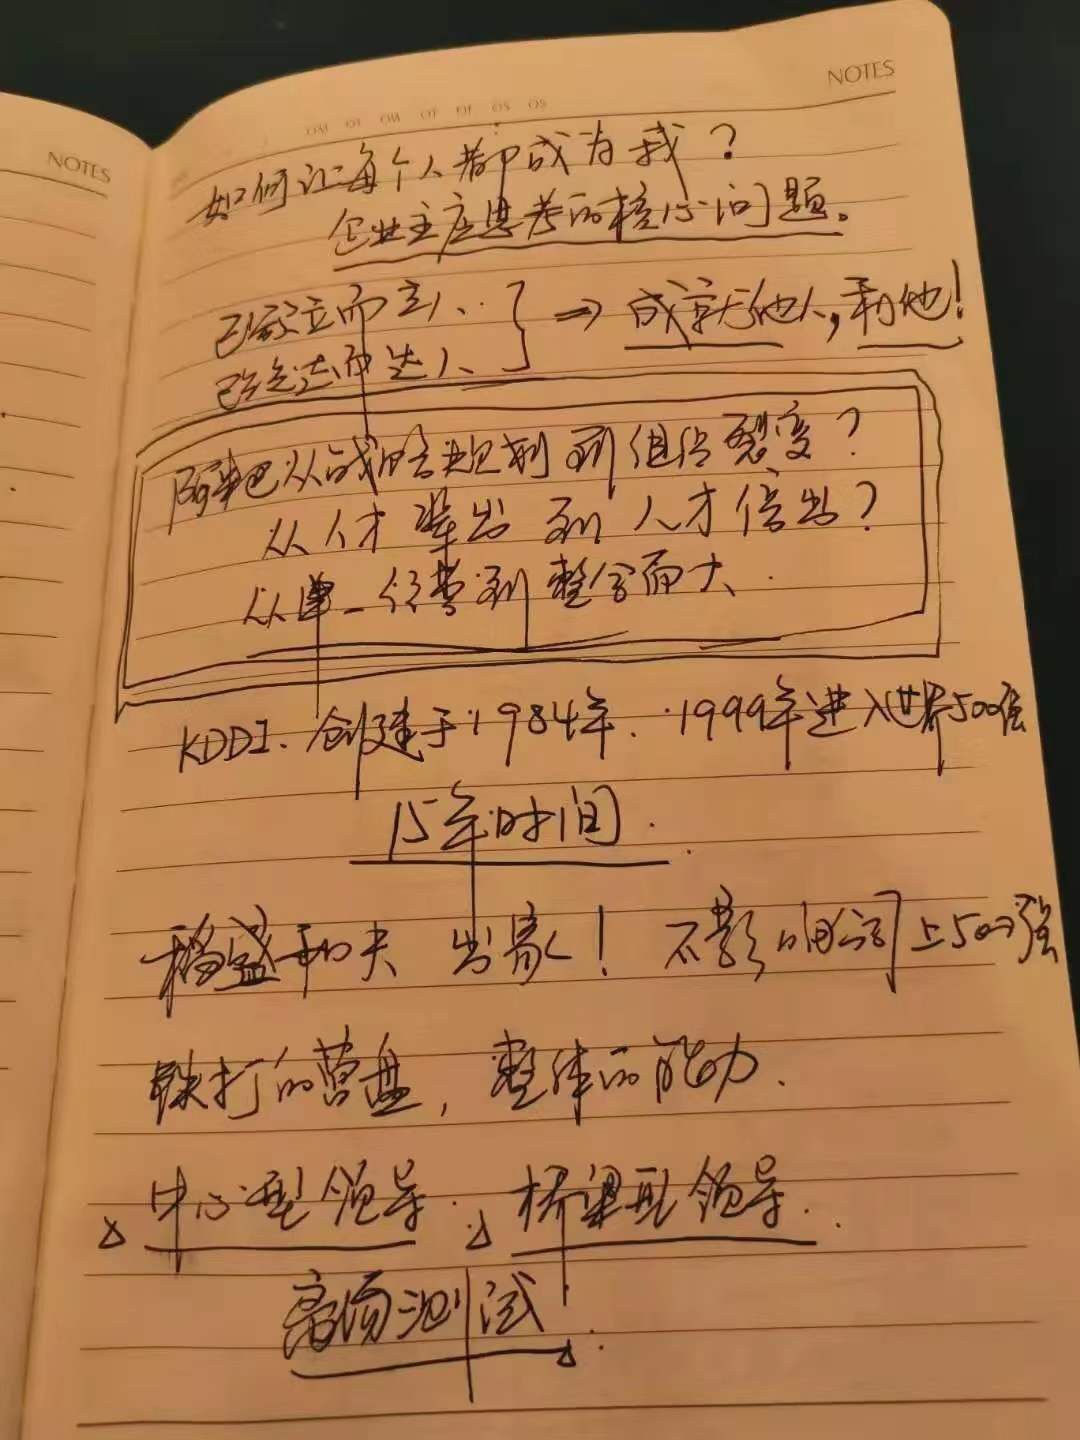 NOTES
NOTES
如何让每个人都成为我？
企业主应思考的核心问题。
己欲立而立人、
己欲达而达人、
⇒ 成就他人，利他！
阿米巴从战略规划到组织裂变？
从人才辈出到人才倍出？
从单一经营到整合而大.
KDDI. 创建于1984年. 1999年进入世界500强
15年时间.
稻盛和夫 出家！不影响公司上500强
铁打的营盘，整体的能力.
中心型领导. 桥梁型领导..
离场测试.